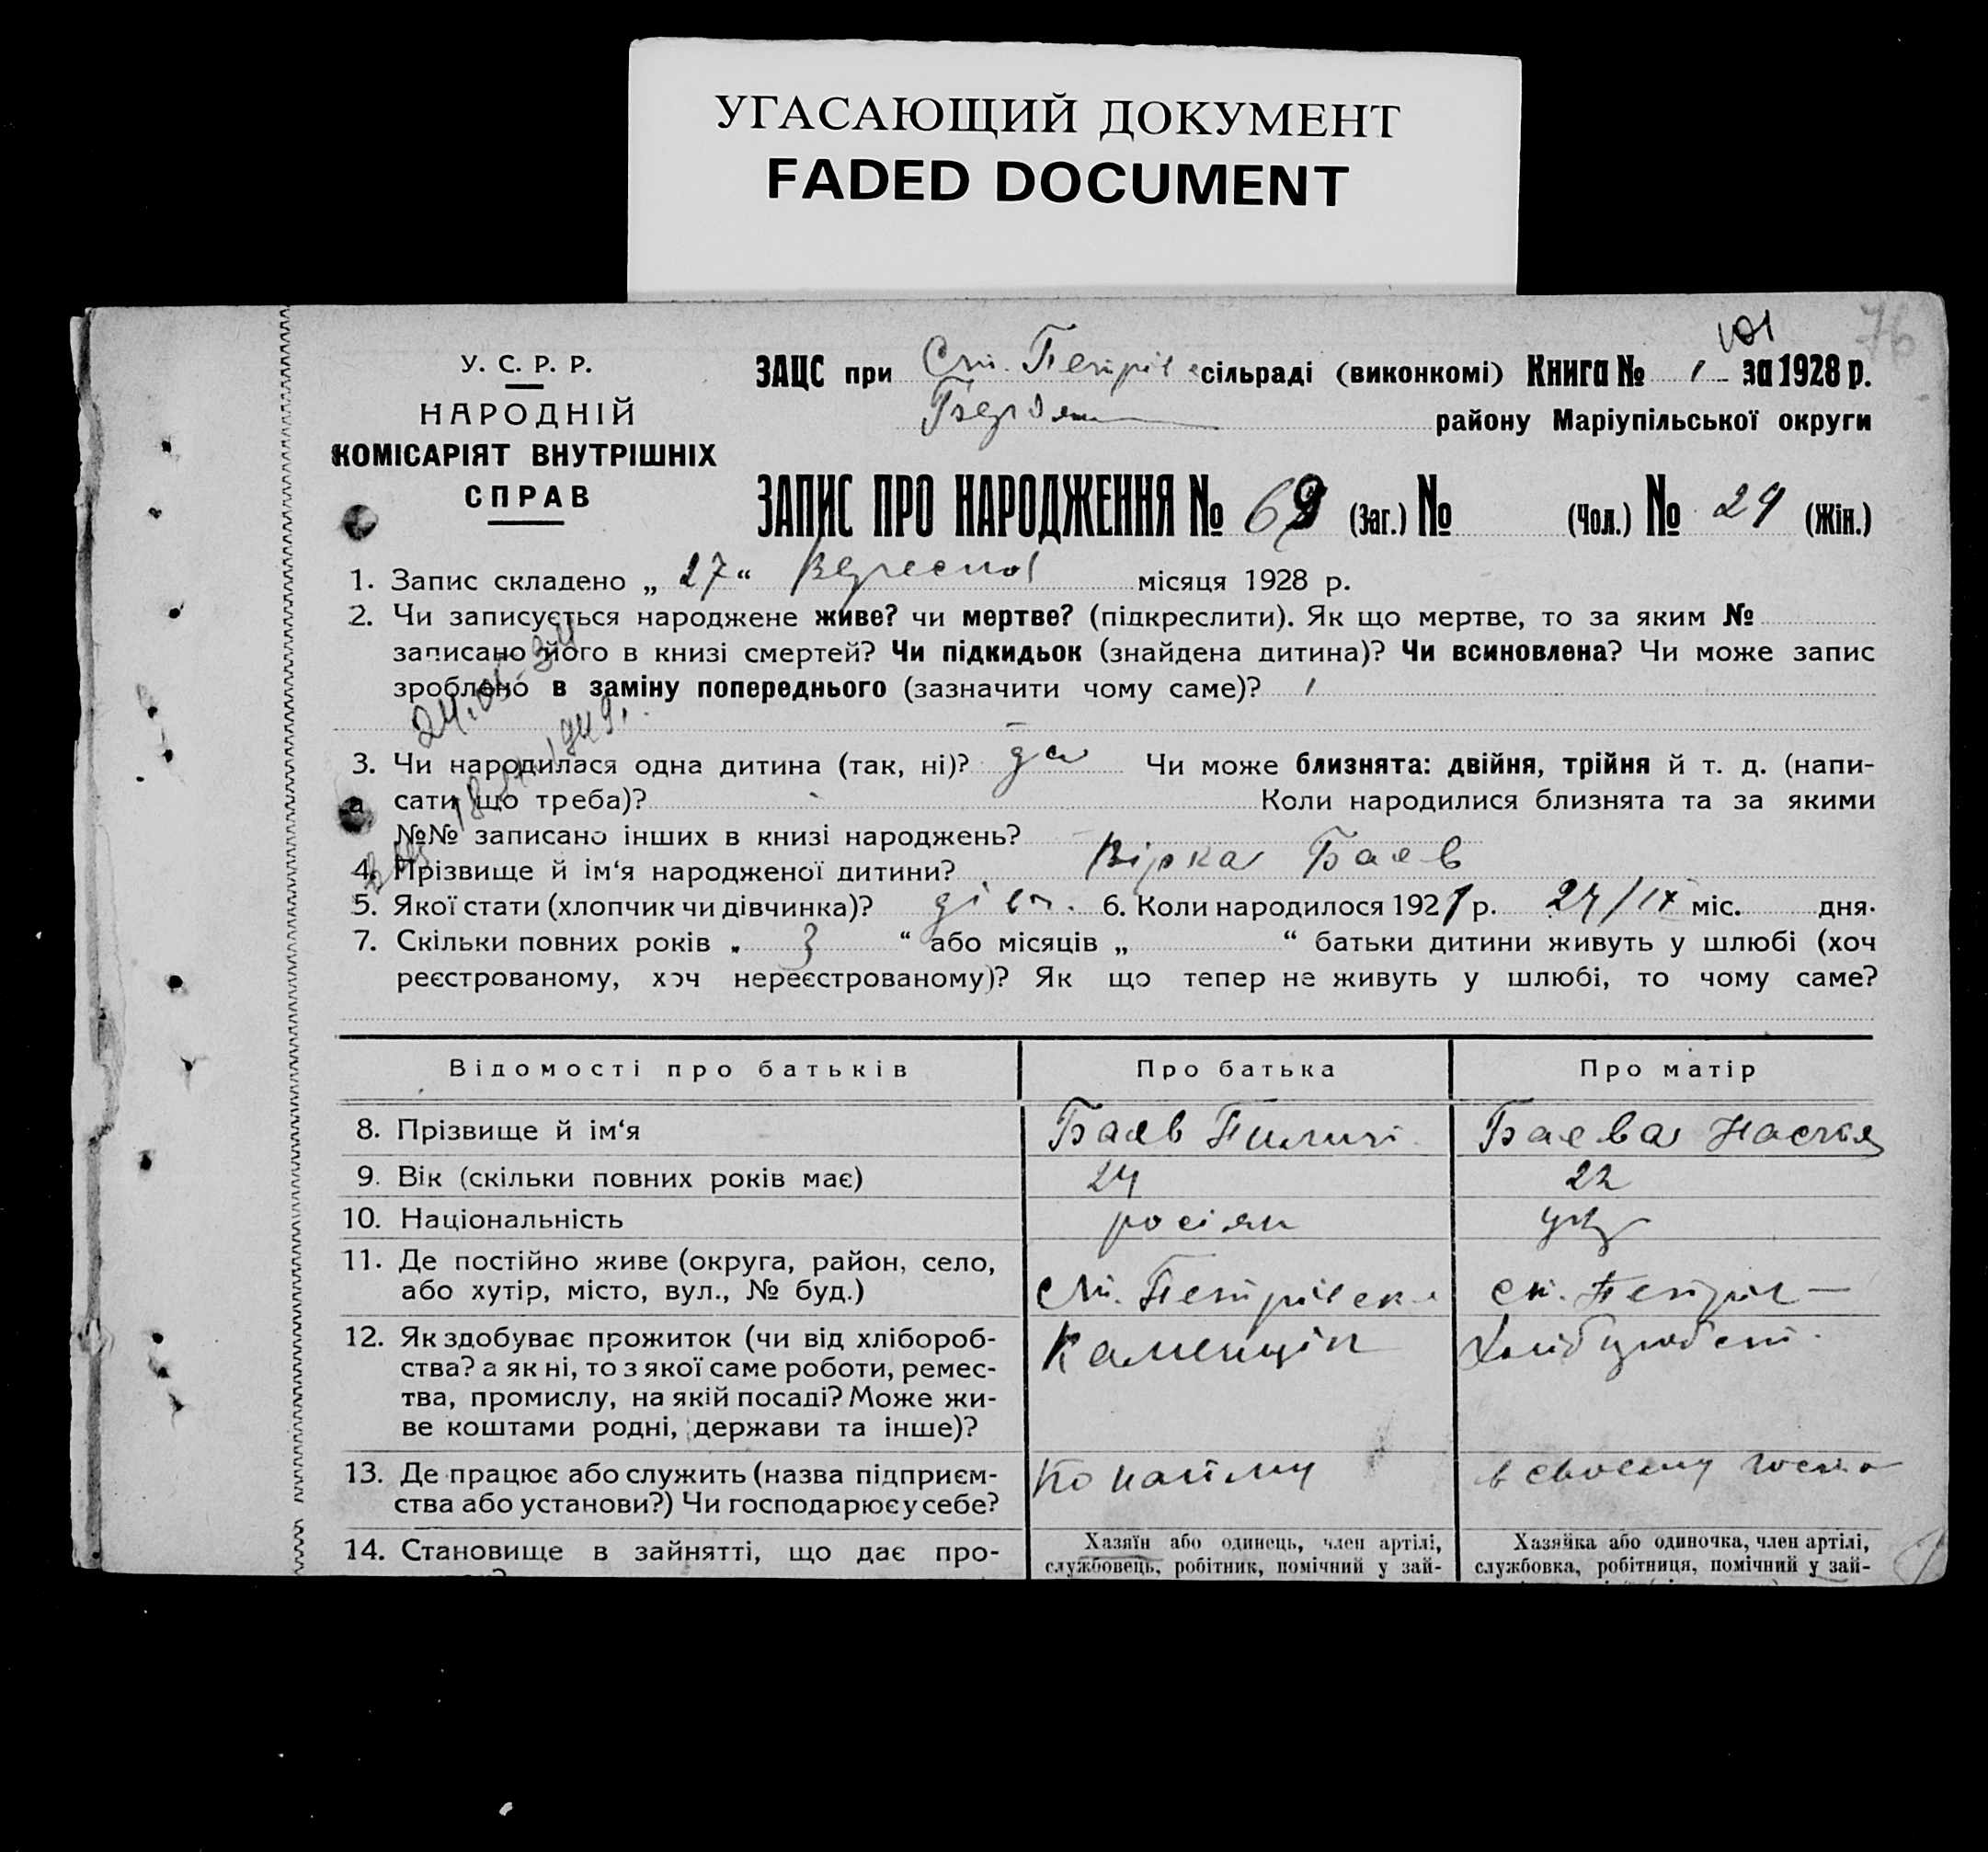 УГАСАЮЩИЙ ДОКУМЕНТ
FADED DOCUMENT
76
У. С. Р. Р.
НАРОДНІЙ
КОМІСАРІЯТ ВНУТРІШНІХ
СПРАВ
ЗАЦС при Ст. Петрів сільраді (виконкомі) Книга № 1 за 1928 р.
Бердян району Маріупільської округи
ЗАПИС ПРО НАРОДЖЕННЯ № 69 (Заг.) № (Чол.) № 29 (Жін.)
1. Запис складено „ 27 “ Вересня місяця 1928 р.
2. Чи записується народжене живе? чи мертве? (підкреслити). Як що мертве, то за яким №
записано його в книзі смертей? Чи підкидьок (знайдена дитина)? Чи всиновлена? Чи може запис
зроблено в заміну попереднього (зазначити чому саме)?
3. Чи народилася одна дитина (так, ні)? да Чи може близнята: двійня, трійня й т. д. (напи-
сати що треба)? Коли народилися близнята та за якими
№№ записано інших в книзі народжень?
4. Прізвище й ім‘я народженої дитини? Вірка Баев
5. Якої стати (хлопчик чи дівчинка)? дівч. 6. Коли народилося 192 р. 24/IX міс. дня.
7. Скільки повних років „ 3 “ або місяців „ “ батьки дитини живуть у шлюбі (хоч
реєстрованому, хоч нереєстрованому)? Як що тепер не живуть у шлюбі, то чому саме?
Відомості про батьків Про батька Про матір
8. Прізвище й ім‘я Баев Баева Настя
9. Вік (скільки повних років має) 24 22
10. Національність росіян укр
11. Де постійно живе (округа, район, село,
або хутір, місто, вул., № буд.) Ст. Петрівська ст. Петрів
12. Як здобуває прожиток (чи від хлібороб- Каменщік Хлібороб
ства? а як ні, то з якої саме роботи, ремес-
тва, промислу, на якій посаді? Може жи-
ве коштами родні, держави та інше)?
13. Де працює або служить (назва підприєм- По найму в своему
ства або установи?) Чи господарює у себе?
14. Становище в зайнятті, що дає про- Хазяїн або одинець, член артілі, Хазяйка або одиночка, член артілі,
службовець, робітник, помічний у зай- службовка, робітниця, помічний у зай-